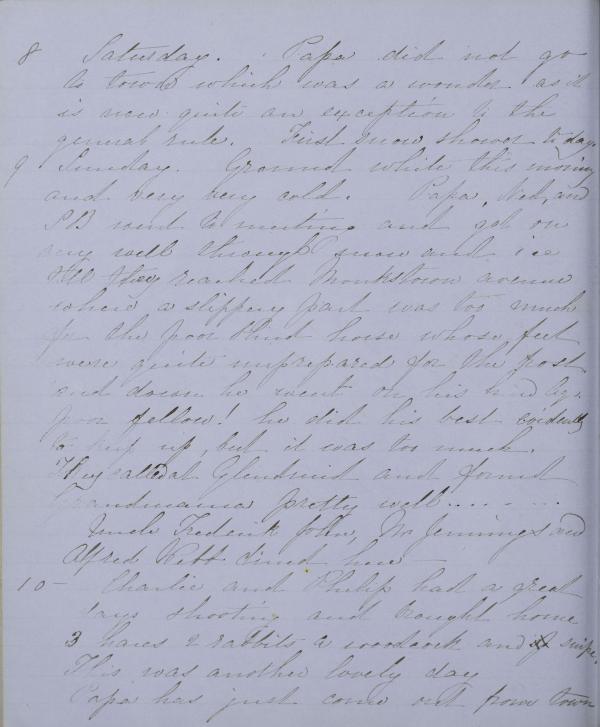 8 Saturday. Papa did not go
to town which was a wonder as it
is now quite an exception to the
general rule. First snow shower to day.
9 Sunday. Ground white this morning
and very very cold. Papa, Ned, and
PB went to meeting and got on
very well through snow and ice
till they reached Monkstown avenue
where a slippery part was too much
for the poor blind horse whose feet
were quite unprepared for the frost
and down he went on his
poor fellow! he did his best evidently
to keep up, but it was too much.
They called at Glendruid and found
Grandmama pretty well........
Uncle Frederick John, Mr Jennings and
Alfred Webb dined here -
10 - Charlie and Philip had a great
days shooting and brought home
3 hares 2 rabbits a woodcock and snipe.
This was another lovely day
Papa has just come out from town